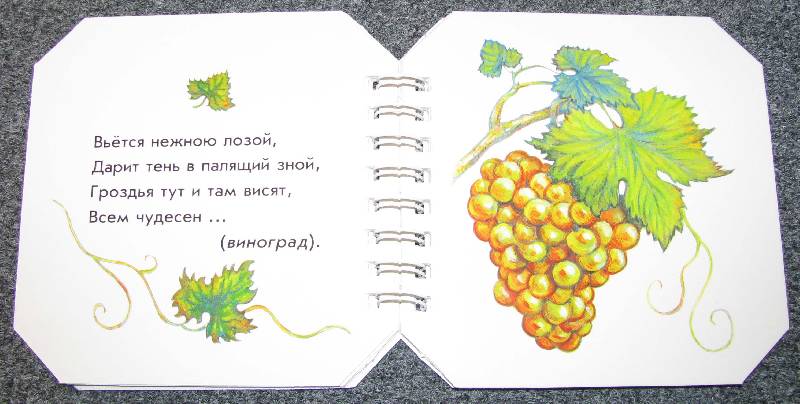 Вьётся нежною лозой,
Дарит тень в палящий зной,
Гроздья тут и там висят,
Всем чудесен ...
(виноград).